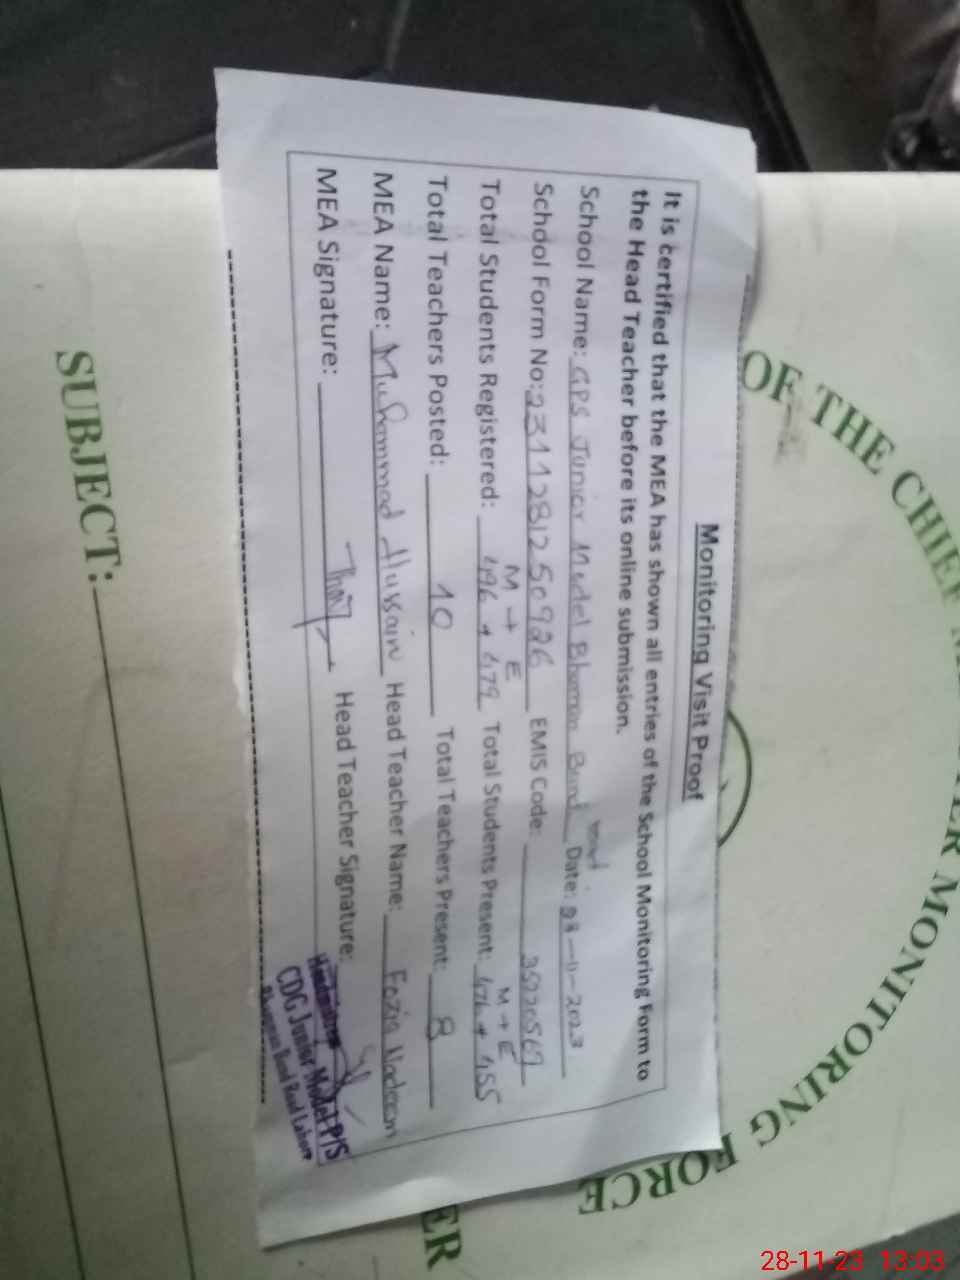 Monitoring Visit Proof
It is certified that the MEA has shown all entries of the School Monitoring Form to
the Head Teacher before its online submission.
School Name: GPS Junior Model Bhaman Band Date: 28-11-2023
School Form No: 2311281250926 EMIS Code: 35220569
M → E M → E
Total Students Registered: 496 + 479 Total Students Present: 476 + 455
Total Teachers Posted: 10 Total Teachers Present: 8
MEA Name: Muhammad Hussain Head Teacher Name: Fozia
MEA Signature: Head Teacher Signature:
CDG Junior Model P/S
Road Lahore
OF THE CHIEF MONITORING FORCE
SUBJECT:
ER
28-11-23 13:03